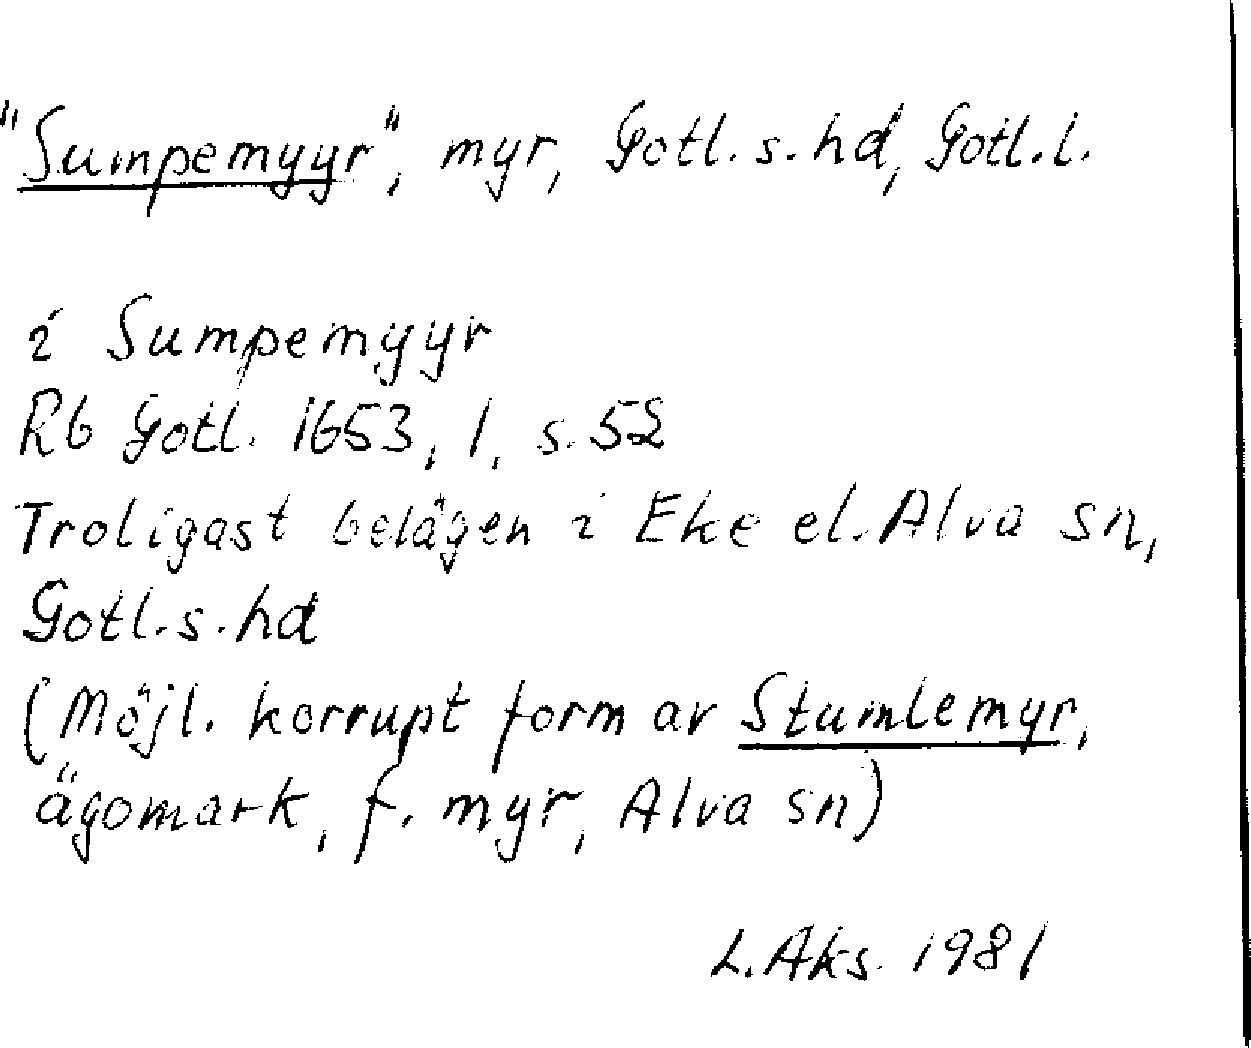 "Sumpemyyr", myr, Gotl. s. hd, Gotl. l.
i Sumpemyyr
Rb Gotl. 1653, 1, s. 52
Troligast belägen i Eke el. Alva sn,
Gotl. s. hd
(Möjl. korrupt form av Stumlemyr,
ägomark, f. myr, Alva sn)
L. Aks. 1981